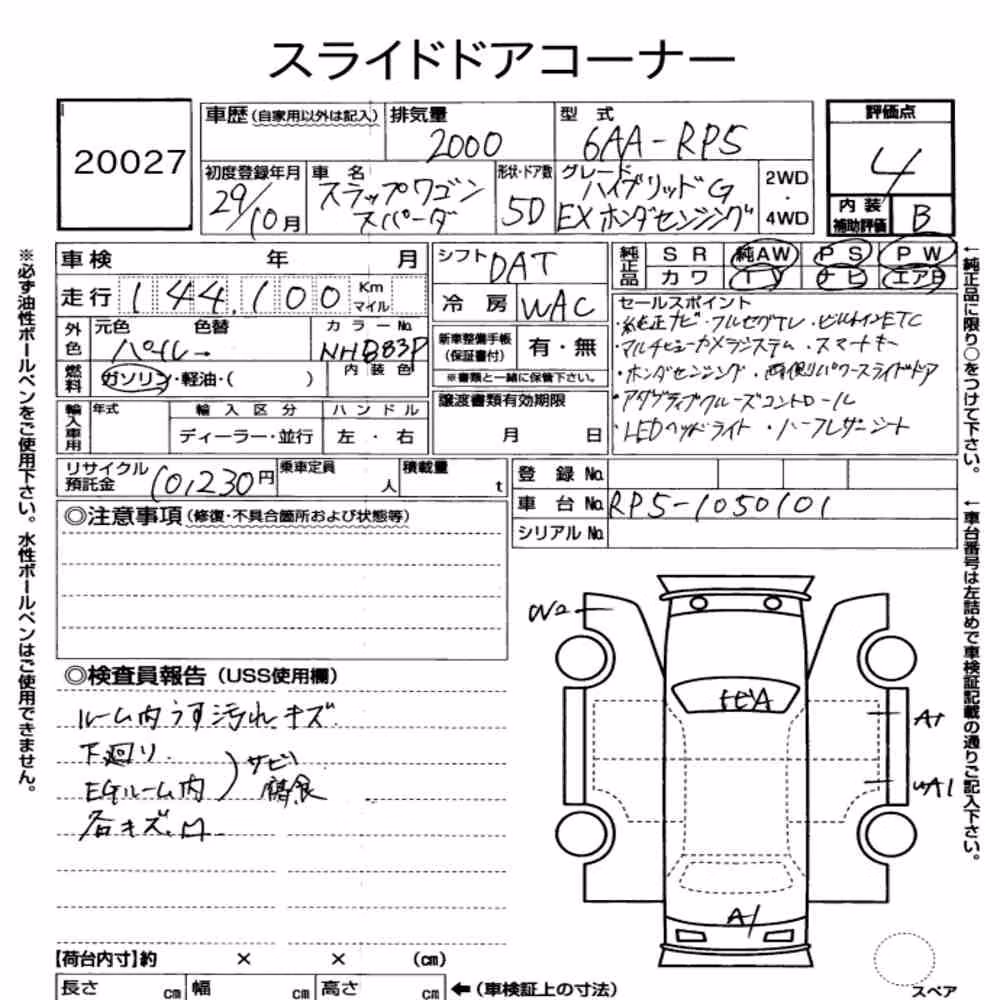 スライドドアコーナー
20027
車歴(自家用以外は記入) 排気量 2000 型式 6AA-RP5 評価点 4
初度登録年月 29/10月 車名 ステップワゴン スパーダ 形状・ドア数 5D グレード ハイブリッドG EX ホンダセンシング 2WD・4WD 内装補助評価 B
車検 年 月 シフト DAT 純正品 SR 純AW PS PW
走行 144,100 Km マイル 冷房 WAC カワ TV ナビ エアB
外色 元色 パール 色替 カラーNo. NH883P
内装色
燃料 ガソリン・軽油・( )
新車整備手帳(保証書付) 有・無
※書類と一緒に保管下さい。
セールスポイント
・純正ナビ・フルセグTV・ビルトインETC
・マルチビューカメラシステム・スマートキー
・ホンダセンシング・両側パワースライドドア
・アダプティブクルーズコントロール
・LEDヘッドライト・ハーフレザーシート
輸入車用 年式 輸入区分 ディーラー・並行 ハンドル 左・右
譲渡書類有効期限 月 日
リサイクル預託金 10,230円 乗車定員 人 積載量 t
登録No.
車台No. RP5-1050101
シリアルNo.
◎注意事項(修復・不具合箇所および状態等)
◎検査員報告(USS使用欄)
ルーム内うす汚れ、キズ
下廻り
EGルーム内 サビ 腐食
各キズ、凹
W2
トビA
A1
WA1
A1
【荷台内寸】約 × × (cm)
長さ cm 幅 cm 高さ cm ←(車検証上の寸法)
スペア
※必ず油性ボールペンをご使用下さい。水性ボールペンはご使用できません。
←純正品に限り○をつけて下さい。
←車台番号は左詰めで車検証記載の通りご記入下さい。